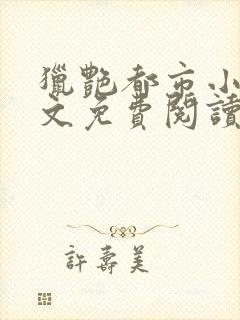 獵艷都市小
文免費閱讀
許壽美